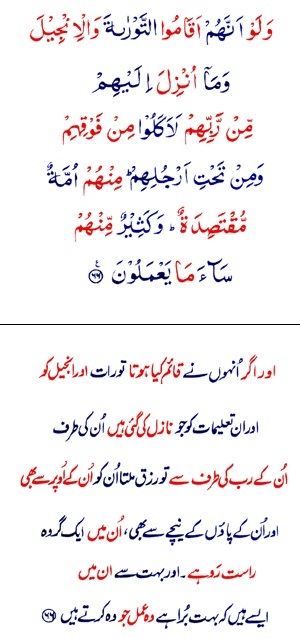 وَلَوْ اَنَّهُمْ اَقَامُوا التَّوْرٰىةَ وَالْاِنْجِيْلَ
وَمَاۤ اُنْزِلَ اِلَيْهِمْ
مِّنْ رَّبِّهِمْ لَاَكَلُوْا مِنْ فَوْقِهِمْ
وَمِنْ تَحْتِ اَرْجُلِهِمْ ؕ مِنْهُمْ اُمَّةٌ
مُّقْتَصِدَةٌ ؕ وَكَثِيْرٌ مِّنْهُمْ
سَآءَ مَا يَعْمَلُوْنَ ﴿۶۶﴾ ع
اور اگر اُنہوں نے قائم کیا ہوتا تورات اور انجیل کو
اور ان تعلیمات کو جو نازل کی گئی ہیں اُن کی طرف
اُن کے رب کی طرف سے تو رزق ملتا ان کو اُن کے اُوپر سے بھی
اور اُن کے پاؤں کے نیچے سے بھی، اُن میں ایک گروہ
راست رَو ہے۔ اور بہت سے ان میں
ایسے ہیں کہ بہت بُرا ہے وہ عمل جو وہ کرتے ہیں ﴿۶۶﴾